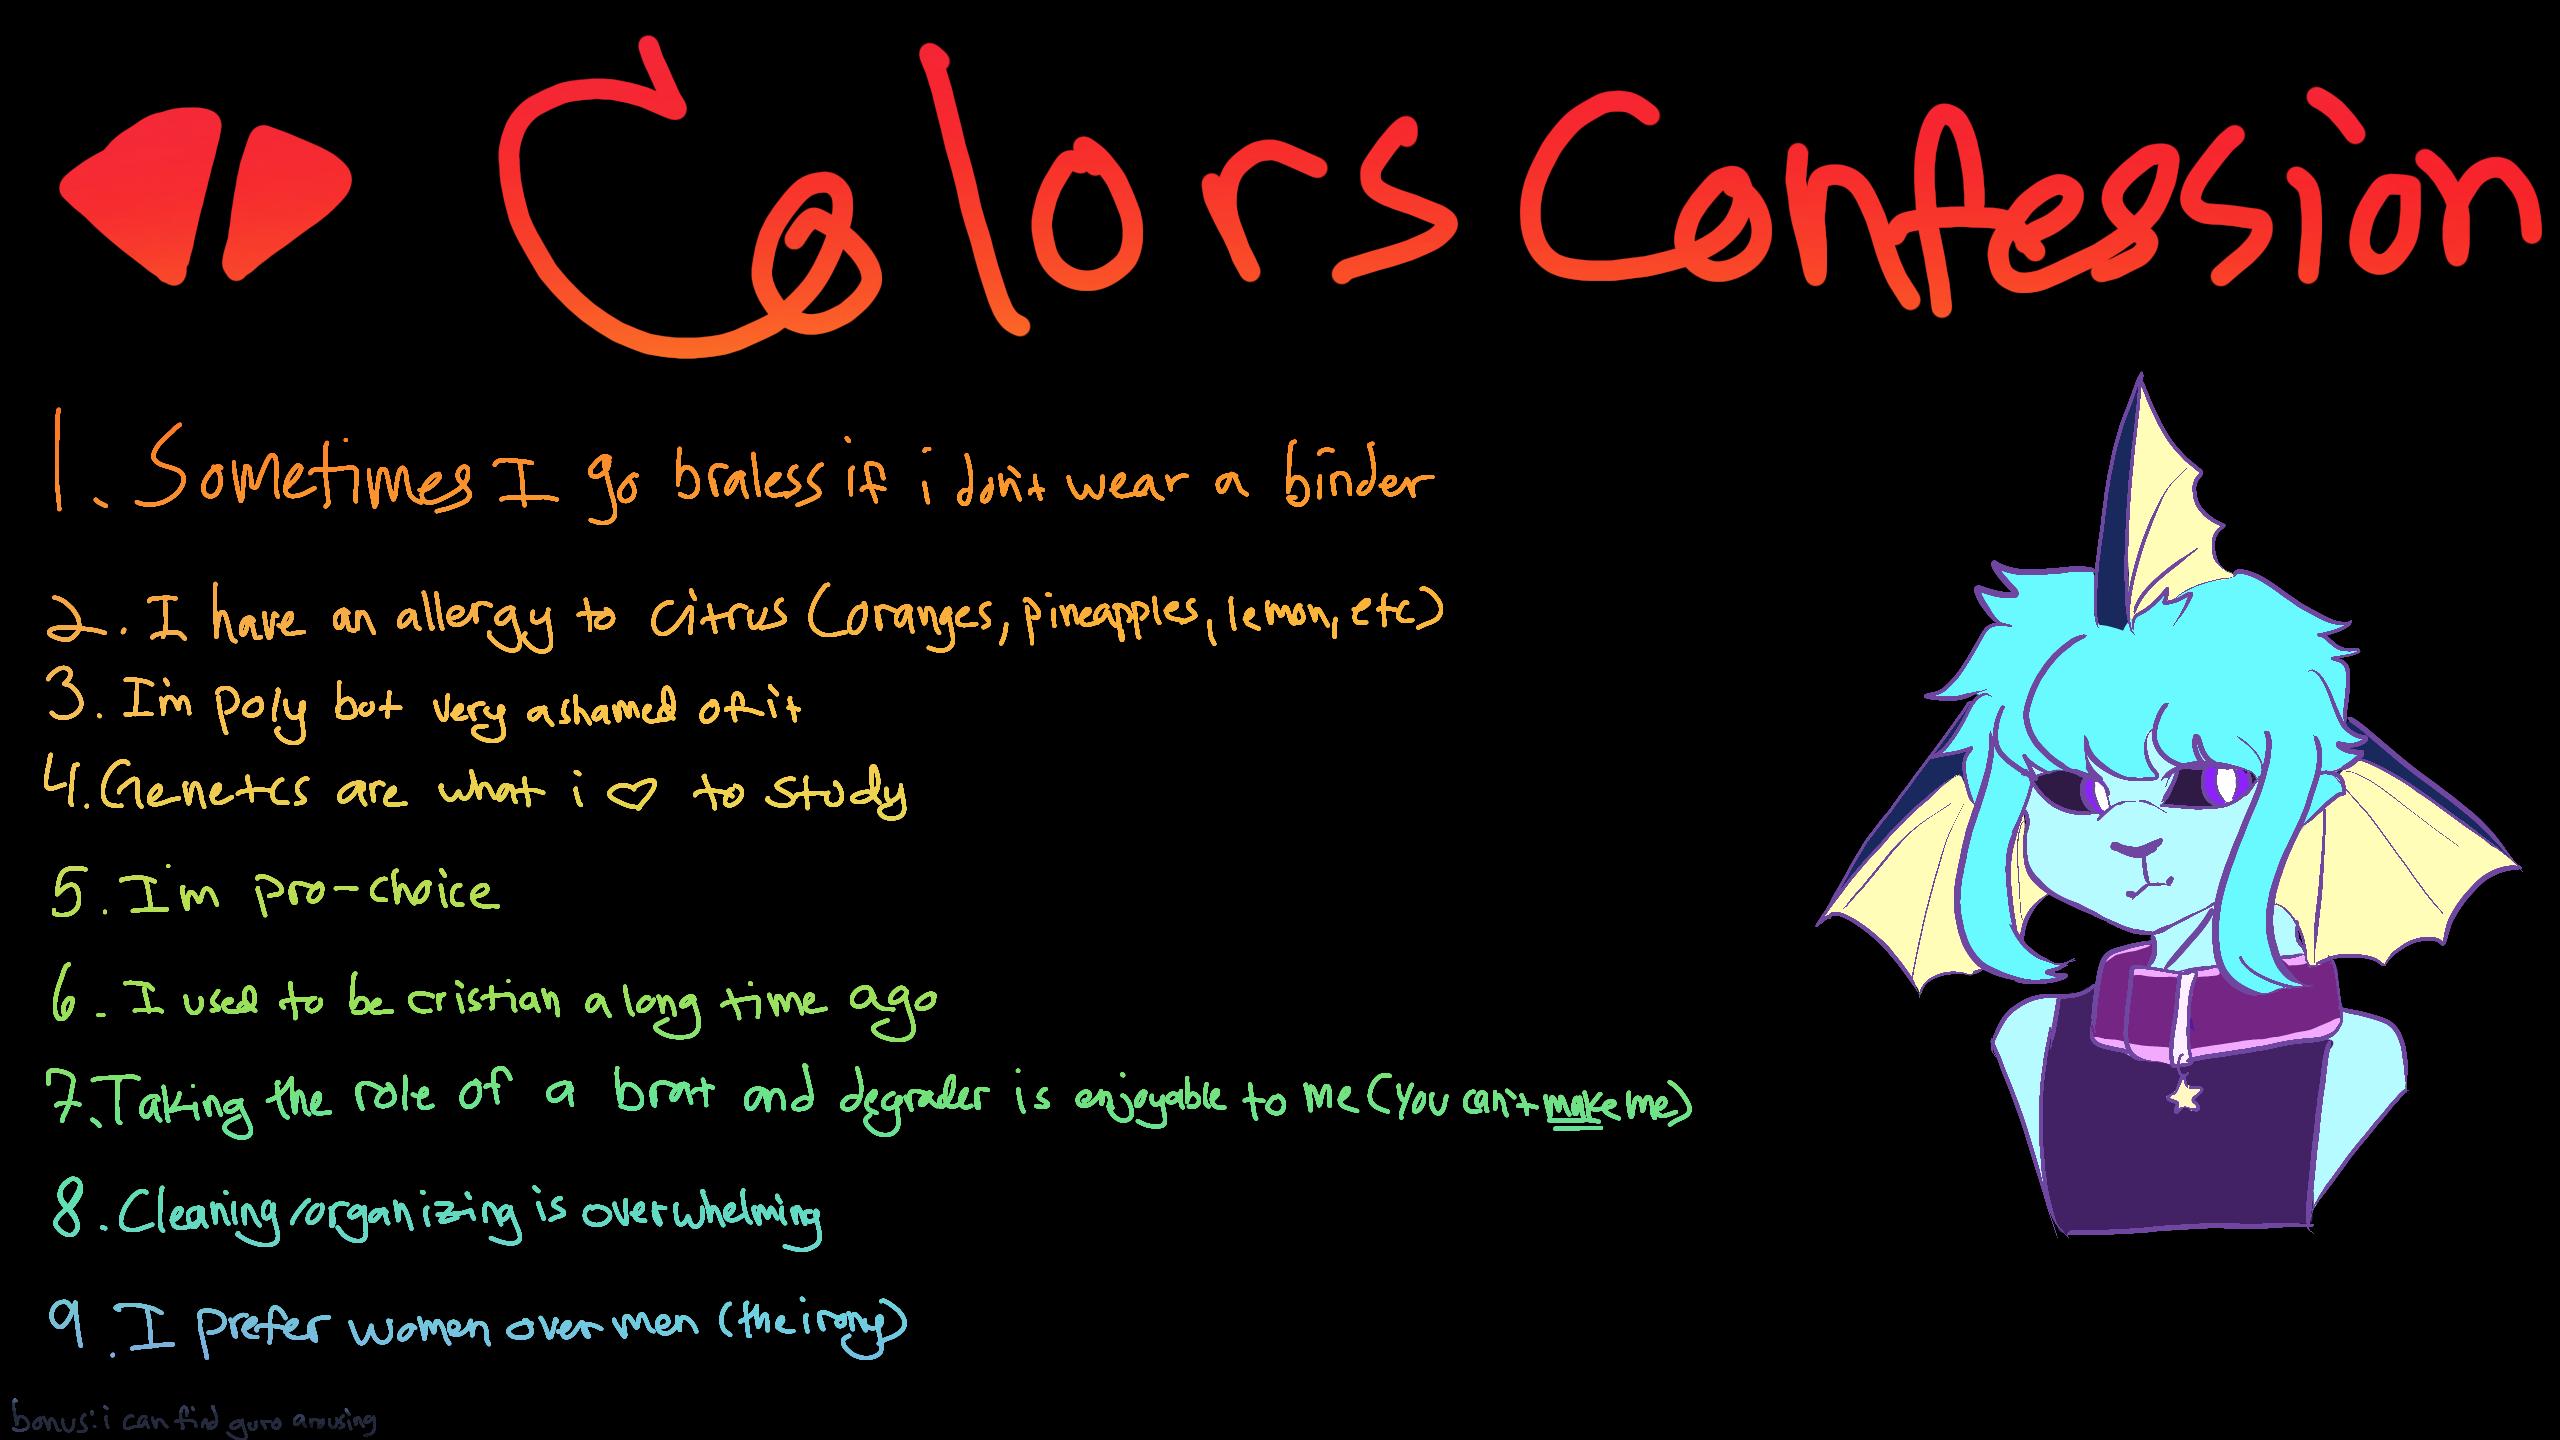 Colors Confession
1. Sometimes I go braless if i don't wear a binder
2. I have an allergy to citrus (oranges, pineapples, lemon, etc)
3. I'm poly but very ashamed of it
4. Genetcs are what i ♡ to study
5. I'm pro-choice
6. I used to be cristian a long time ago
7. Taking the role of a brat and degrader is enjoyable to me (you can't make me)
8. Cleaning/organizing is overwhelming
9. I prefer women over men (the irony)
bonus: i can find guro arousing